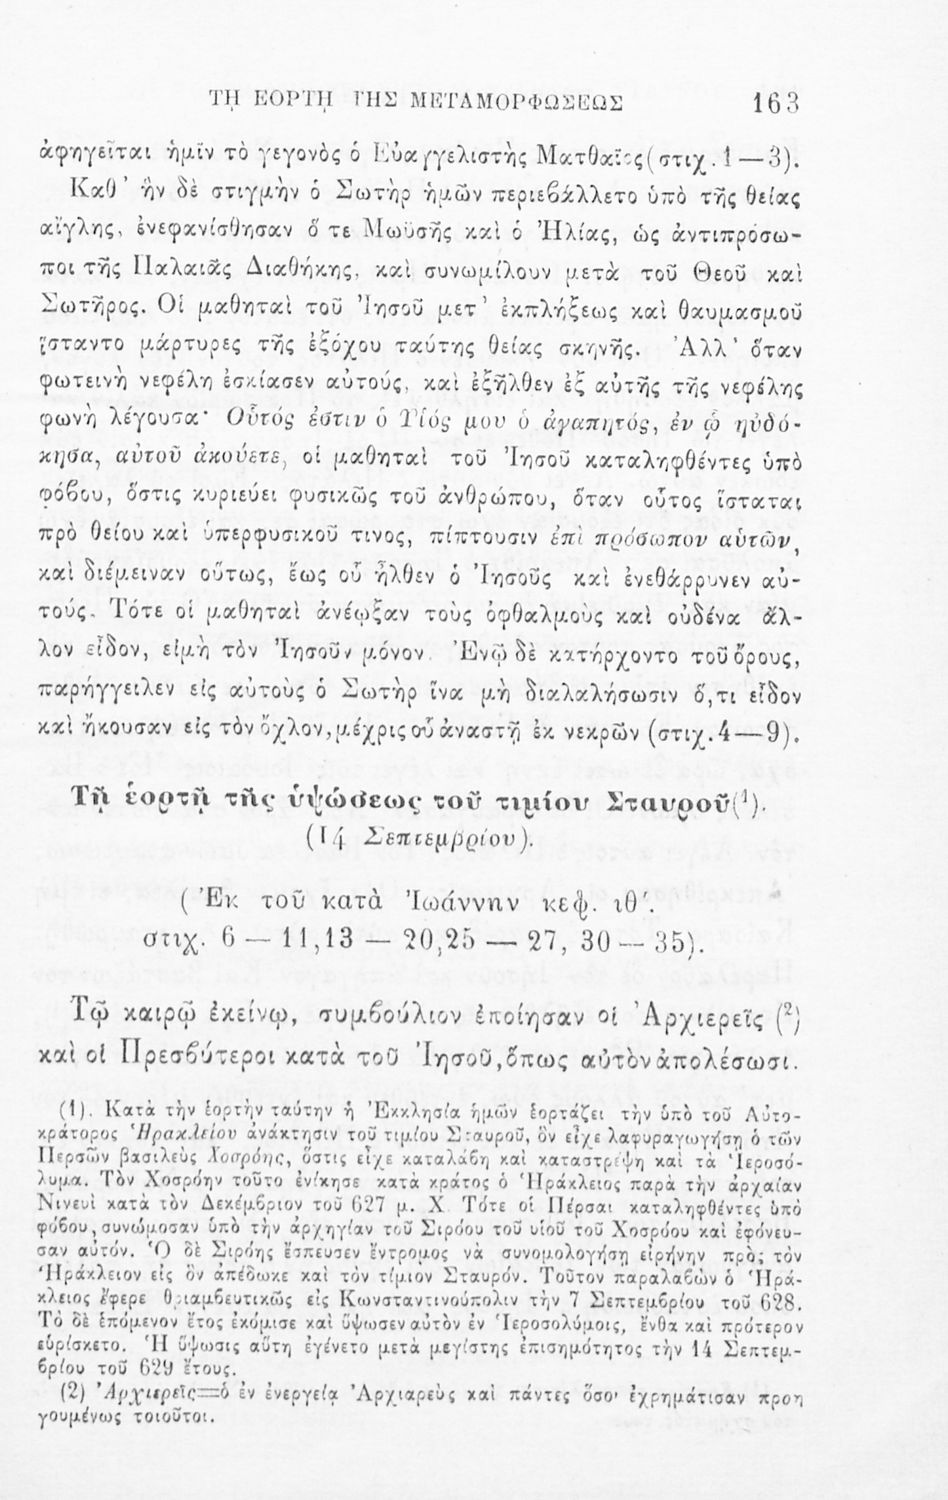 ΤΗ ΕΟΡΤΗ ΤΗΣ ΜΕΤΑΜΟΡΦΩΣΕΩΣ 163
ἀφηγεῖται ἡμῖν τὸ γεγονὸς ὁ Εὐαγγελιστὴς Ματθαῖος (στιχ. 1 — 3).
Καθ’ ἣν δὲ στιγμὴν ὁ Σωτὴρ ἡμῶν περιεβάλλετο ὑπὸ τῆς θείας
αἴγλης, ἐνεφανίσθησαν ὅ τε Μωϋσῆς καὶ ὁ Ἠλίας, ὡς ἀντιπρόσω-
ποι τῆς Παλαιᾶς Διαθήκης, καὶ συνωμίλουν μετὰ τοῦ Θεοῦ καὶ
Σωτῆρος. Οἱ μαθηταὶ τοῦ Ἰησοῦ μετ’ ἐκπλήξεως καὶ θαυμασμοῦ
ἵσταντο μάρτυρες τῆς ἐξόχου ταύτης θείας σκηνῆς. Ἀλλ’ ὅταν
φωτεινὴ νεφέλη ἐσκίασεν αὐτούς, καὶ ἐξῆλθεν ἐξ αὐτῆς τῆς νεφέλης
φωνὴ λέγουσα· Οὗτός ἐστιν ὁ Υἱός μου ὁ ἀγαπητός, ἐν ᾧ ηὐδό-
κησα, αὐτοῦ ἀκούετε, οἱ μαθηταὶ τοῦ Ἰησοῦ καταληφθέντες ὑπὸ
φόβου, ὅστις κυριεύει φυσικῶς τοῦ ἀνθρώπου, ὅταν οὗτος ἵσταται
πρὸ θείου καὶ ὑπερφυσικοῦ τινος, πίπτουσιν ἐπὶ πρόσωπον αὐτῶν,
καὶ διέμειναν οὕτως, ἕως οὗ ἦλθεν ὁ Ἰησοῦς καὶ ἐνεθάρρυνεν αὐ-
τούς. Τότε οἱ μαθηταὶ ἀνέῳξαν τοὺς ὀφθαλμοὺς καὶ οὐδένα ἄλ-
λον εἶδον, εἰμὴ τὸν Ἰησοῦν μόνον. Ἐνῷ δὲ κατήρχοντο τοῦ ὄρους,
παρήγγειλεν εἰς αὐτοὺς ὁ Σωτὴρ ἵνα μὴ διαλαλήσωσιν ὅ,τι εἶδον
καὶ ἤκουσαν εἰς τὸν ὄχλον, μέχρις οὗ ἀναστῇ ἐκ νεκρῶν (στιχ. 4 — 9).
Τῇ ἑορτῇ τῆς ὑψώσεως τοῦ τιμίου Σταυροῦ(¹).
(14 Σεπτεμβρίου).
(Ἐκ τοῦ κατὰ Ἰωάννην κεφ. ιθ'.
στιχ. 6 — 11,13 — 20,25 — 27, 30 — 35).
Τῷ καιρῷ ἐκείνῳ, συμβούλιον ἐποίησαν οἱ Ἀρχιερεῖς (²)
καὶ οἱ Πρεσβύτεροι κατὰ τοῦ Ἰησοῦ, ὅπως αὐτὸν ἀπολέσωσι.
(1). Κατὰ τὴν ἑορτὴν ταύτην ἡ Ἐκκλησία ἡμῶν ἑορτάζει τὴν ὑπὸ τοῦ Αὐτο-
κράτορος Ἡρακλείου ἀνάκτησιν τοῦ τιμίου Σταυροῦ, ὃν εἶχε λαφυραγωγήσῃ ὁ τῶν
Περσῶν βασιλεὺς Χοσρόης, ὅστις εἶχε καταλάβῃ καὶ καταστρέψῃ καὶ τὰ Ἱεροσό-
λυμα. Τὸν Χοσρόην τοῦτο ἐνίκησε κατὰ κράτος ὁ Ἡράκλειος παρὰ τὴν ἀρχαίαν
Νινευὶ κατὰ τὸν Δεκέμβριον τοῦ 627 μ. Χ. Τότε οἱ Πέρσαι καταληφθέντες ὑπὸ
φόβου, συνώμοσαν ὑπὸ τὴν ἀρχηγίαν τοῦ Σιρόου τοῦ υἱοῦ τοῦ Χοσρόου καὶ ἐφόνευ-
σαν αὐτόν. Ὁ δὲ Σιρόης ἔσπευσεν ἔντρομος νὰ συνομολογήσῃ εἰρήνην πρὸς τὸν
Ἡράκλειον εἰς ὃν ἀπέδωκε καὶ τὸν τίμιον Σταυρόν. Τοῦτον παραλαβὼν ὁ Ἡρά-
κλειος ἔφερε θριαμβευτικῶς εἰς Κωνσταντινούπολιν τὴν 7 Σεπτεμβρίου τοῦ 628.
Τὸ δὲ ἑπόμενον ἔτος ἐκόμισε καὶ ὕψωσεν αὐτὸν ἐν Ἱεροσολύμοις, ἔνθα καὶ πρότερον
εὑρίσκετο. Ἡ ὕψωσις αὕτη ἐγένετο μετὰ μεγίστης ἐπισημότητος τὴν 14 Σεπτεμ-
βρίου τοῦ 629 ἔτους.
(2) Ἀρχιερεῖς=ὁ ἐν ἐνεργείᾳ Ἀρχιαρεὺς καὶ πάντες ὅσοι ἐχρημάτισαν προη
γουμένως τοιοῦτοι.